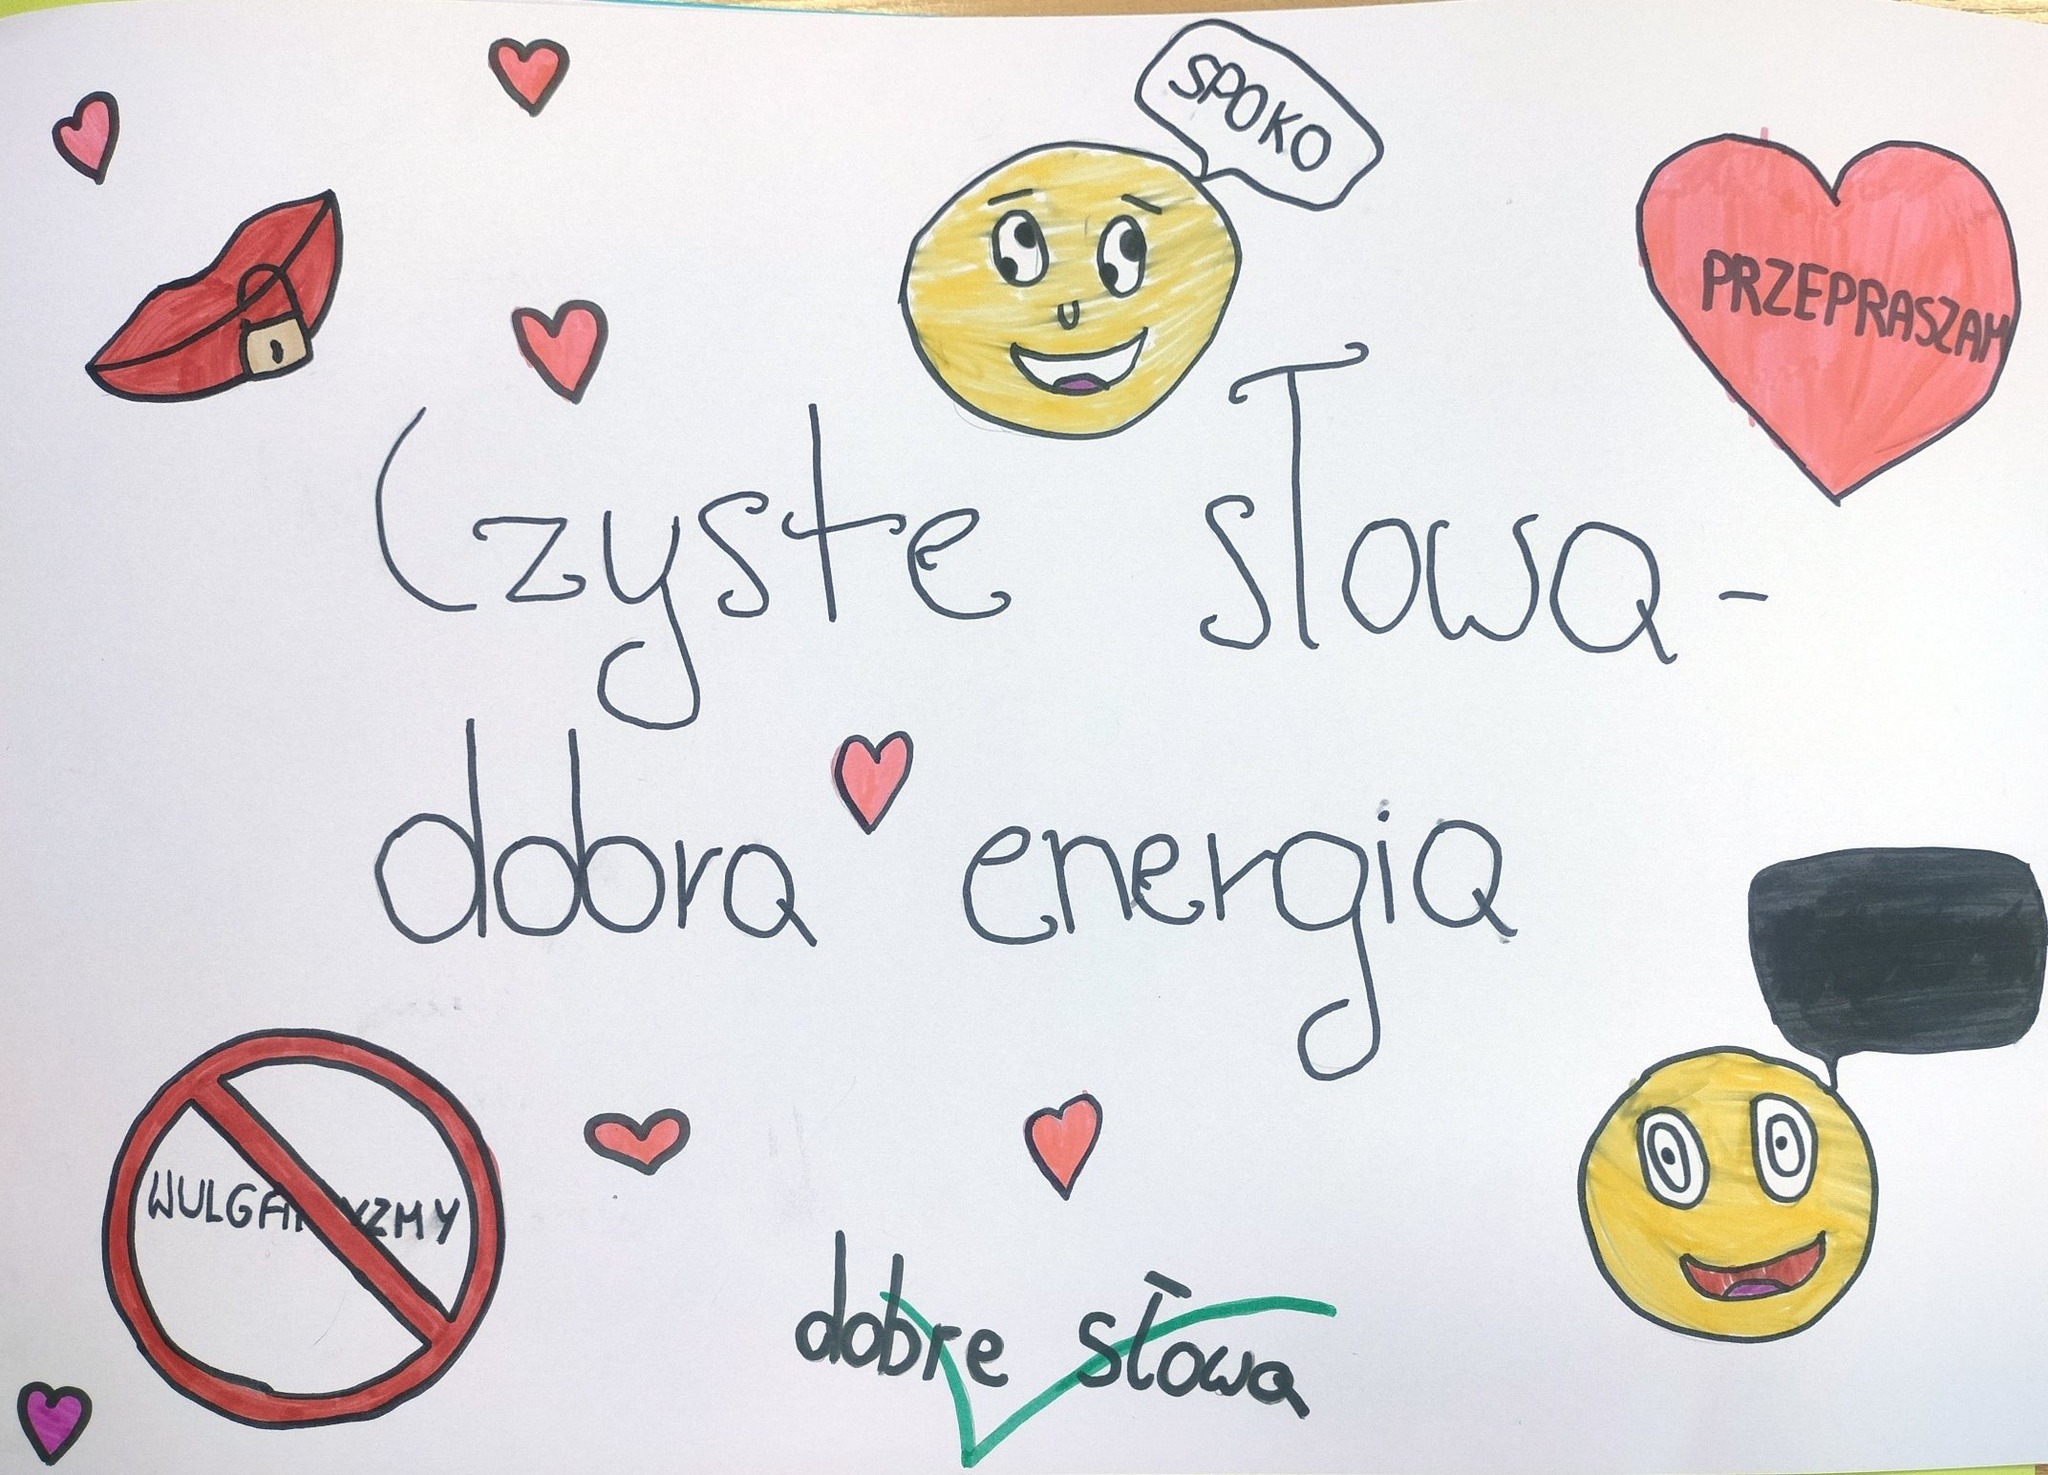 SPOKO
PRZEPRASZAM
Czyste słowa -
dobra energia
WULGARYZMY
dobre słowa